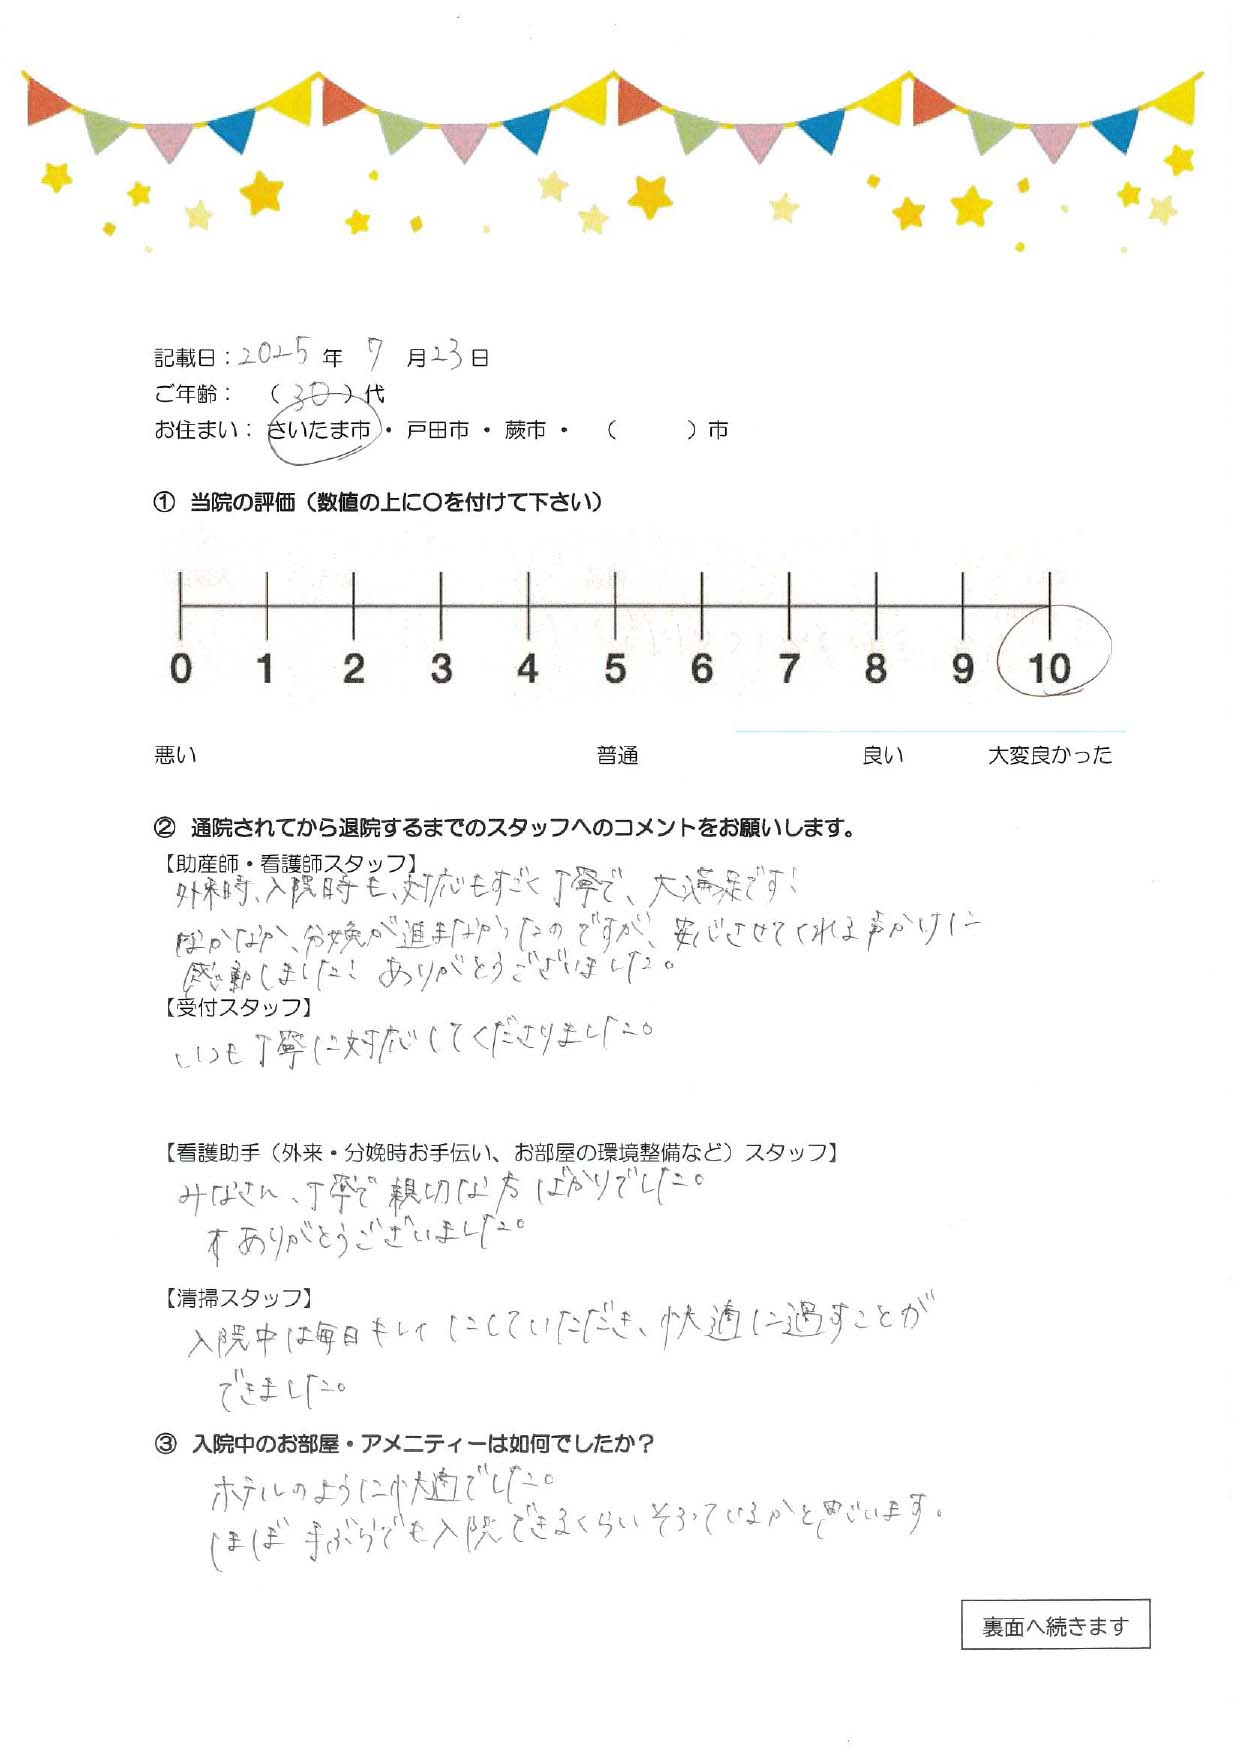 記載日：2025 年 7 月 23 日
ご年齢： （ 30 ）代
お住まい： さいたま市 ・ 戸田市 ・ 蕨市 ・ （ ）市
① 当院の評価（数値の上に〇を付けて下さい）
0 1 2 3 4 5 6 7 8 9 10
悪い 普通 良い 大変良かった
② 通院されてから退院するまでのスタッフへのコメントをお願いします。
【助産師・看護師スタッフ】
外来時、入院時も、対応もすごく丁寧で、大満足です！
なかなか、分娩が進まなかったのですが、安心させてくれる声かけに
感動しました！ ありがとうございました。
【受付スタッフ】
いつも丁寧に対応してくださりました。
【看護助手（外来・分娩時お手伝い、お部屋の環境整備など）スタッフ】
みなさん、丁寧で親切な方ばかりでした。
ありがとうございました。
【清掃スタッフ】
入院中は毎日キレイにしていただき、快適に過すことが
できました。
③ 入院中のお部屋・アメニティーは如何でしたか？
ホテルのように快適でした。
ほぼ手ぶらでも入院できるくらいそろっているかと思います。
裏面へ続きます